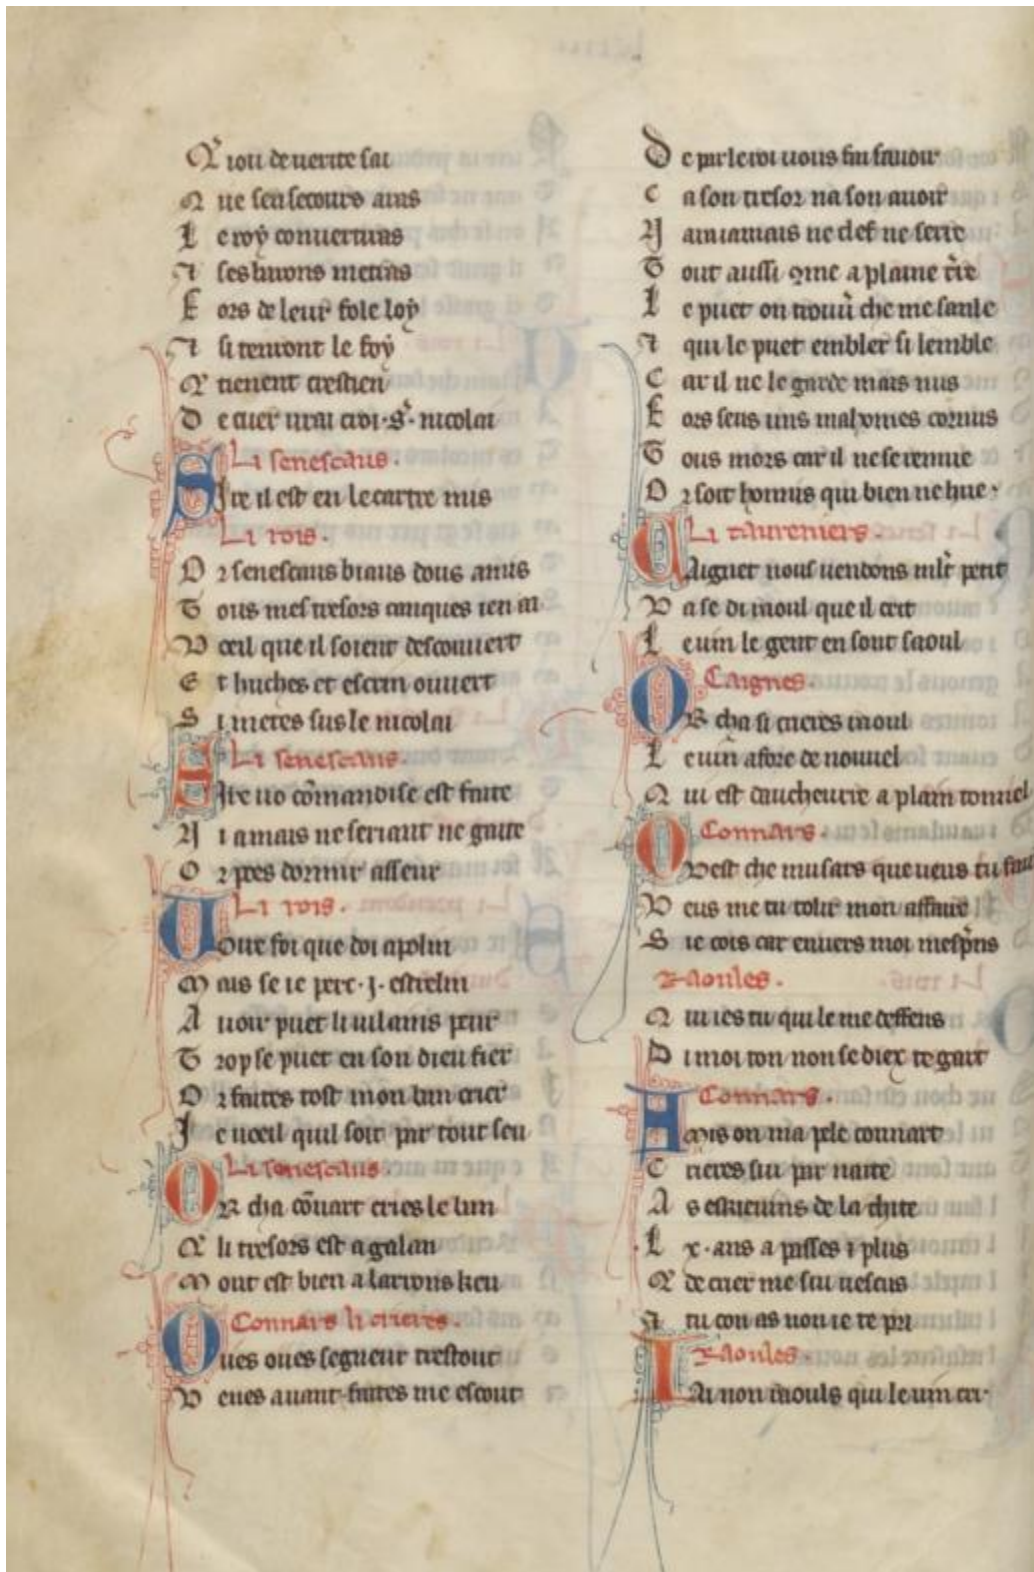 Q iou de uerite sai
Q ue sen secours aras
L e roy conuertiras
⁊ ses barons metras
F ors de leur fole loy
⁊ si tenront le foy
Q tienent crestien
D e cuer urai croi .S. nicolai
Li senescaus.
Sire il est en le cartre mis
Li rois.
O r senescaus biaus dous amis
T ous mes tresors canques ien ai
V oeil que il soient descouuert
E t huches et escrin ouuert
S i metes sus le nicolai
Li senescaus.
Sire uo cōmandise est faite
N i a mais ne seriant ne gaite
O r poes dormir asseur
Li rois.
Voire foi que doi apolin
M ais se ie perc .j. estrelin
A uoir puet li uilains peur
T rop se puet en son dieu fier
O r faites tost mon ban crier
J e uoeil quil soit par tout seu
Li senescaus.
Or cha cōnart cries le ban
Q li tresors est a galan
M out est bien a larrons keu
Connars li crieres.
Oiies oiies segneur trestout
V enes auant faites me escout
D e par le roi uous fai sauoir
C a son tresor na son auoir
N aura iamais ne clef ne serre
T out aussi 9me a plaine t̄re
L e puet on trouu̓ che me sanle
⁊ qui le puet embler si lemble
C ar il ne le garde mais nus
F ors seus uns mahomes cornus
T ous mors car il ne se remue
O r soit honnis qui bien ne hue.
Li taureniers.
Caignet nous uendons mlt̄ petit
V a se di raoul que il crit
L e uin le gent en sont saoul
Caignes.
Or cha si crieres raoul
L e uin afore de nouuel
Q ui est daucheurre a plain tonnel
Connars.
Qvest che musars que ueus tu faire
V eus me tu tolir mon affaire
S ie cois car enuers moi mesp̄ns
Raoules.
Q ui ies tu qui le me deffens
D i moi ton non se diex te gart
Connars.
Amis on ma pele connart
C rieres sui par naite
A s eskieuins de la chite
L x. ans a passes ⁊ plus
Q de crier me sui uescus
⁊ tu con as non ie te pri
Raoules.
Iai non raouls qui le uin cri.